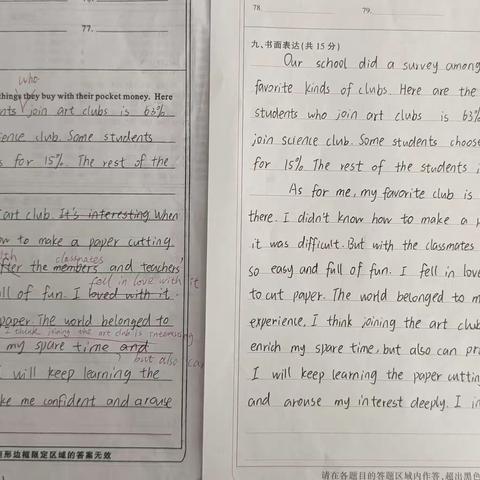 77.
who
things they buy with their pocket money. Here
join art clubs is 63%
club. Some students
for 15%. The rest of the
art club. It's interesting When
to make a paper cutting
classmates
the members and teachers'
fell in love with it
of fun. I loved with it.
paper. The world belonged to
I think joining the art club is interesting
my spare time and
but also can
I will keep learning the
me confident and arouse
形边框限定区域的答案无效
78.
79.
九、书面表达(共 15 分)
Our school did a survey among
favorite kinds of clubs. Here are the
students who join art clubs is 63%
join science club. Some students choose
for 15%. The rest of the students
As for me, my favorite club is
there. I didn't know how to make a
it was difficult. But with the classmates
so easy and full of fun. I fell in love
to cut paper. The world belonged to
experience. I think joining the art club
enrich my spare time, but also can
I will keep learning the paper cutting
and arouse my interest deeply. I
请在各题目的答题区域内作答,超出黑色